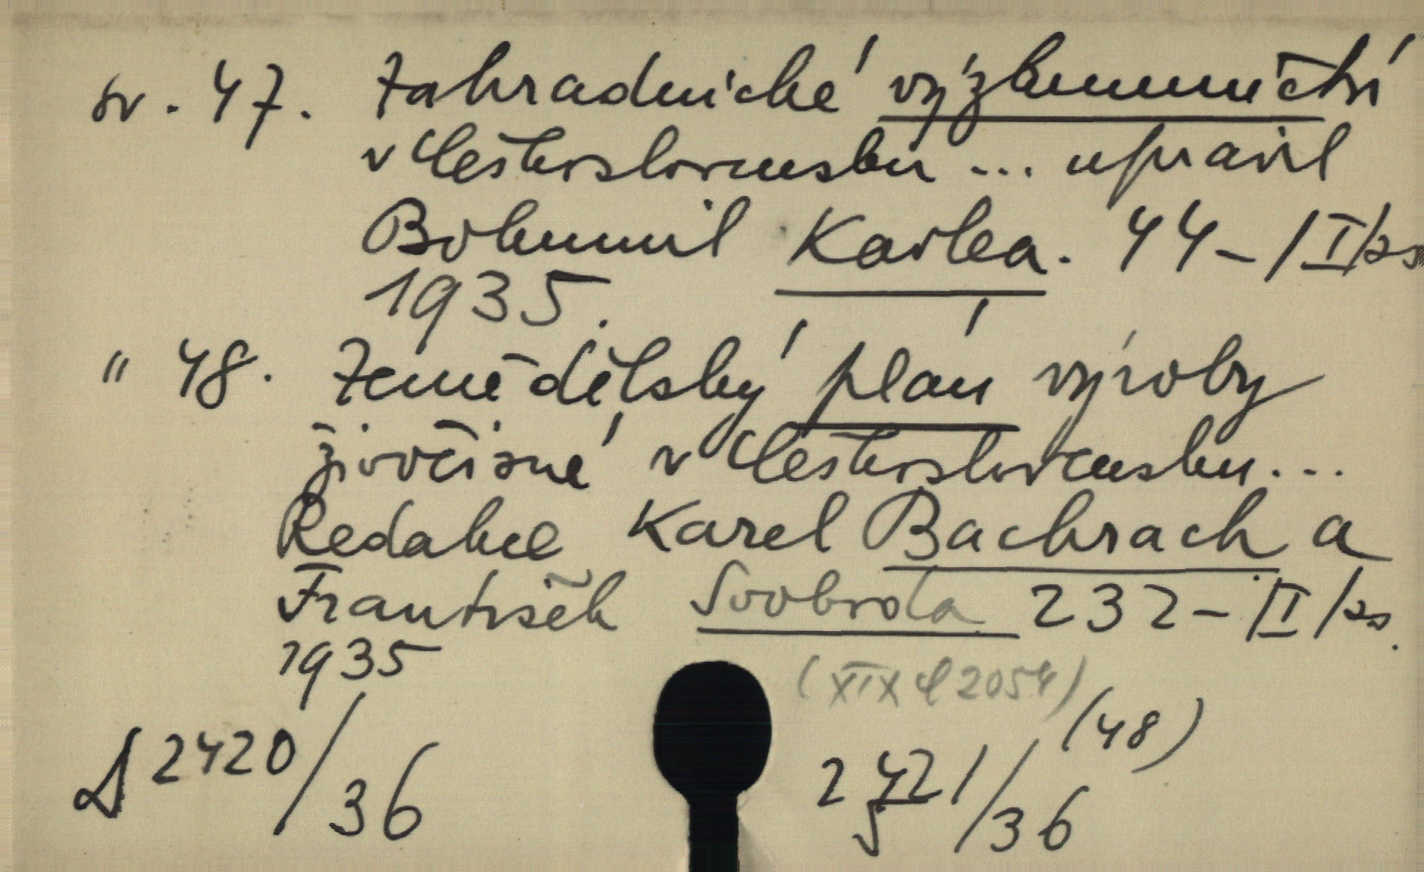 sv. 47. Zahradnické výzkumnictví
v Československu ... upravil
Bohumil Kavka. 44-/I/
1935.
" 48. Zemědělský plán výroby
živočisné v Československu...
Redakce Karel Bachrach a
František Svoboda 232-II/
1935
(XIX d 2054)
2420/36 2421/36 (48)